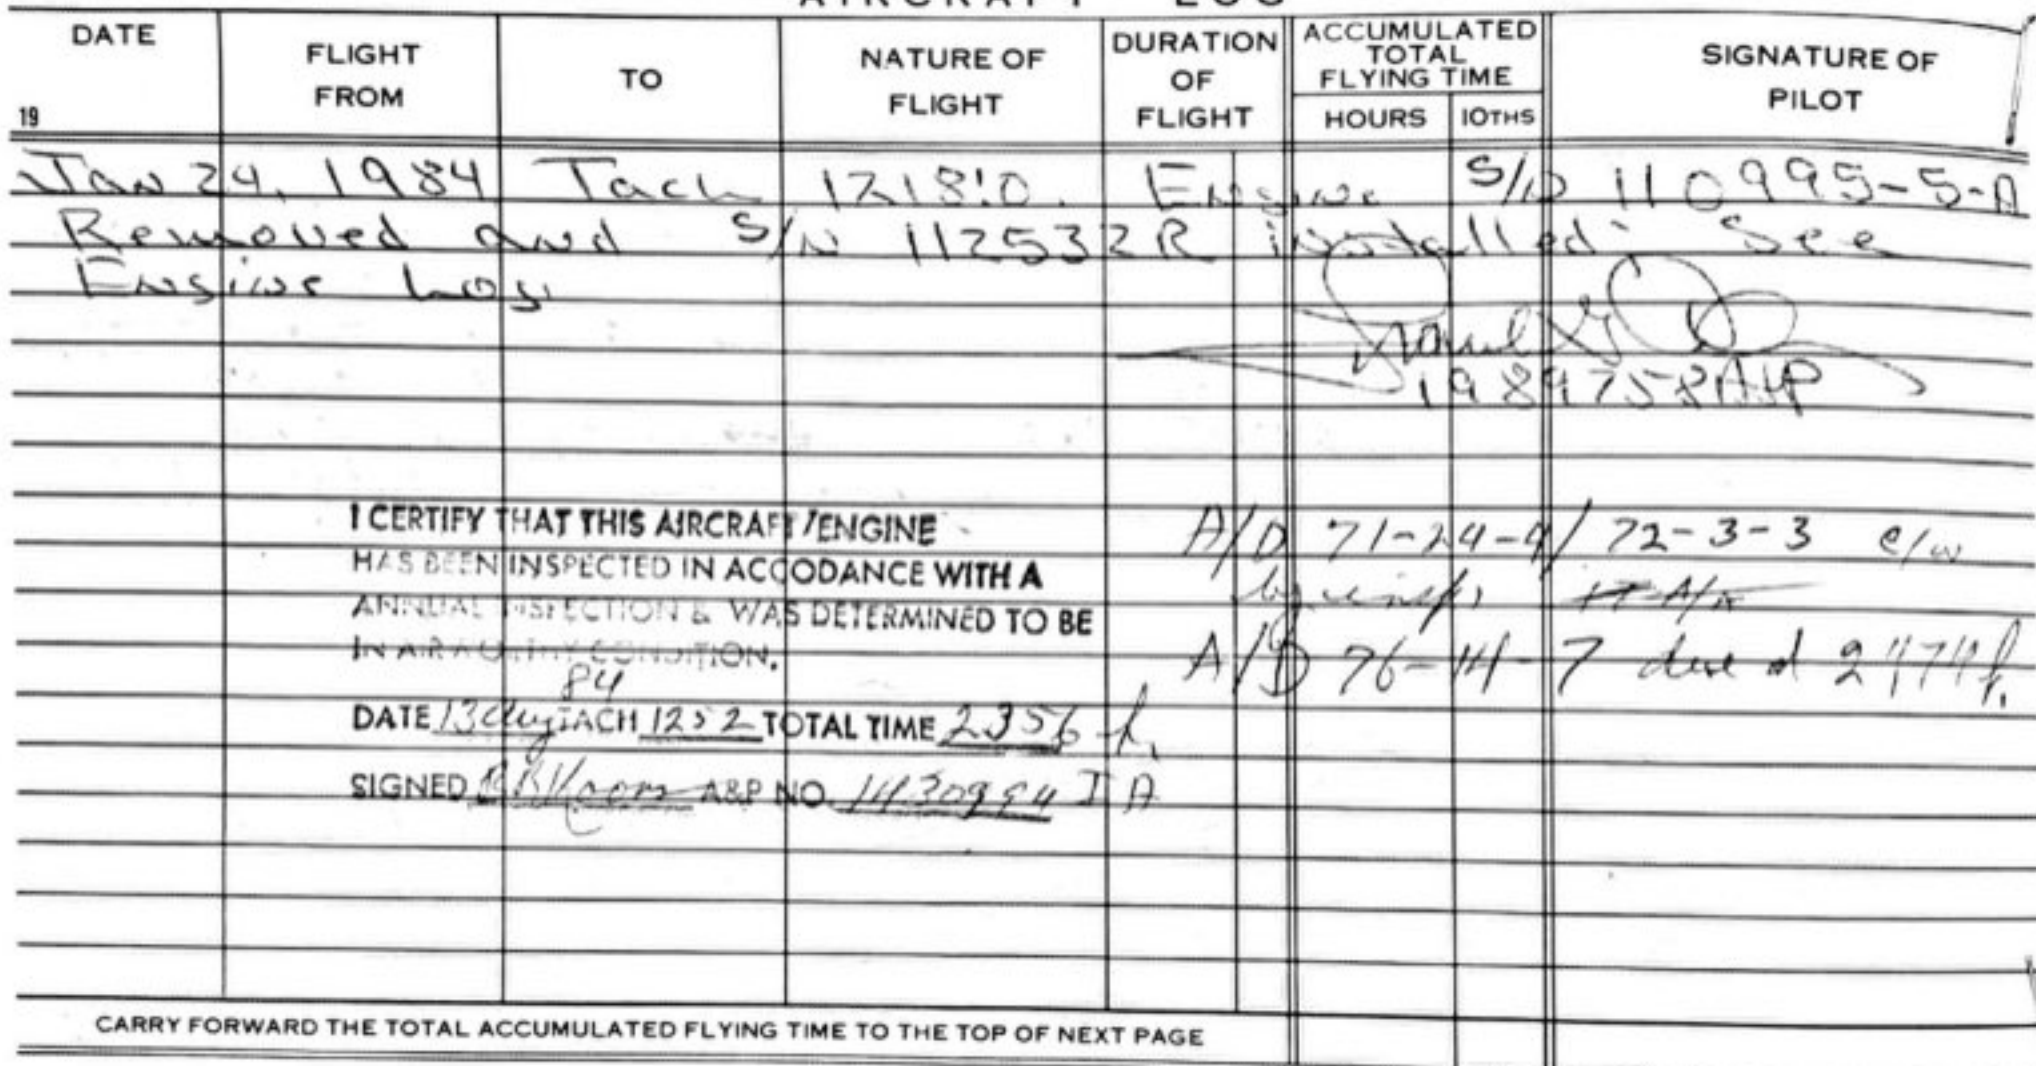 AIRCRAFT LOG
DATE
19
FLIGHT FROM
TO
NATURE OF FLIGHT
DURATION OF FLIGHT
ACCUMULATED TOTAL FLYING TIME
HOURS
10THS
SIGNATURE OF PILOT
Jan 24, 1984 Tach 1218.0. Engine S/N 110995-5-A
Removed and S/N 112532R installed. See
Engine Log
1989758 A&P
I CERTIFY THAT THIS AIRCRAFT/ENGINE
HAS BEEN INSPECTED IN ACCODANCE WITH A
ANNUAL INSPECTION & WAS DETERMINED TO BE
IN AIRWORTHY CONDITION.
84
DATE 13 Aug TACH 1252 TOTAL TIME 2356 h.
SIGNED A&P NO. 1430994 IA
A/D 71-24-4/72-3-3 c/w
by insp.
A/D 76-14-7 due at 2474 h.
CARRY FORWARD THE TOTAL ACCUMULATED FLYING TIME TO THE TOP OF NEXT PAGE